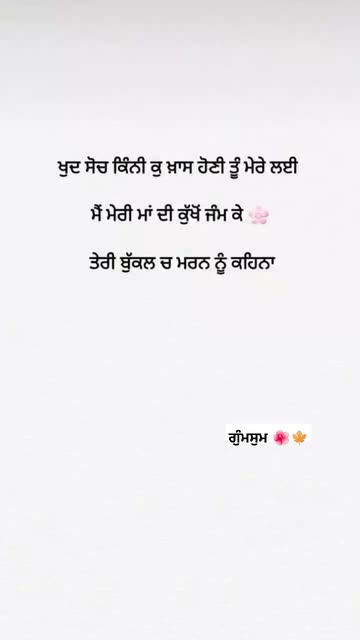 ਖੁਦ ਸੋਚ ਕਿੰਨੀ ਕੁ ਖ਼ਾਸ ਹੋਣੀ ਤੂੰ ਮੇਰੇ ਲਈ
ਮੈਂ ਮੇਰੀ ਮਾਂ ਦੀ ਕੁੱਖੋਂ ਜੰਮ ਕੇ 🌸
ਤੇਰੀ ਬੁੱਕਲ ਚ ਮਰਨ ਨੂੰ ਕਹਿਨਾ
ਗੁੰਮਸੁਮ 🌺🍁